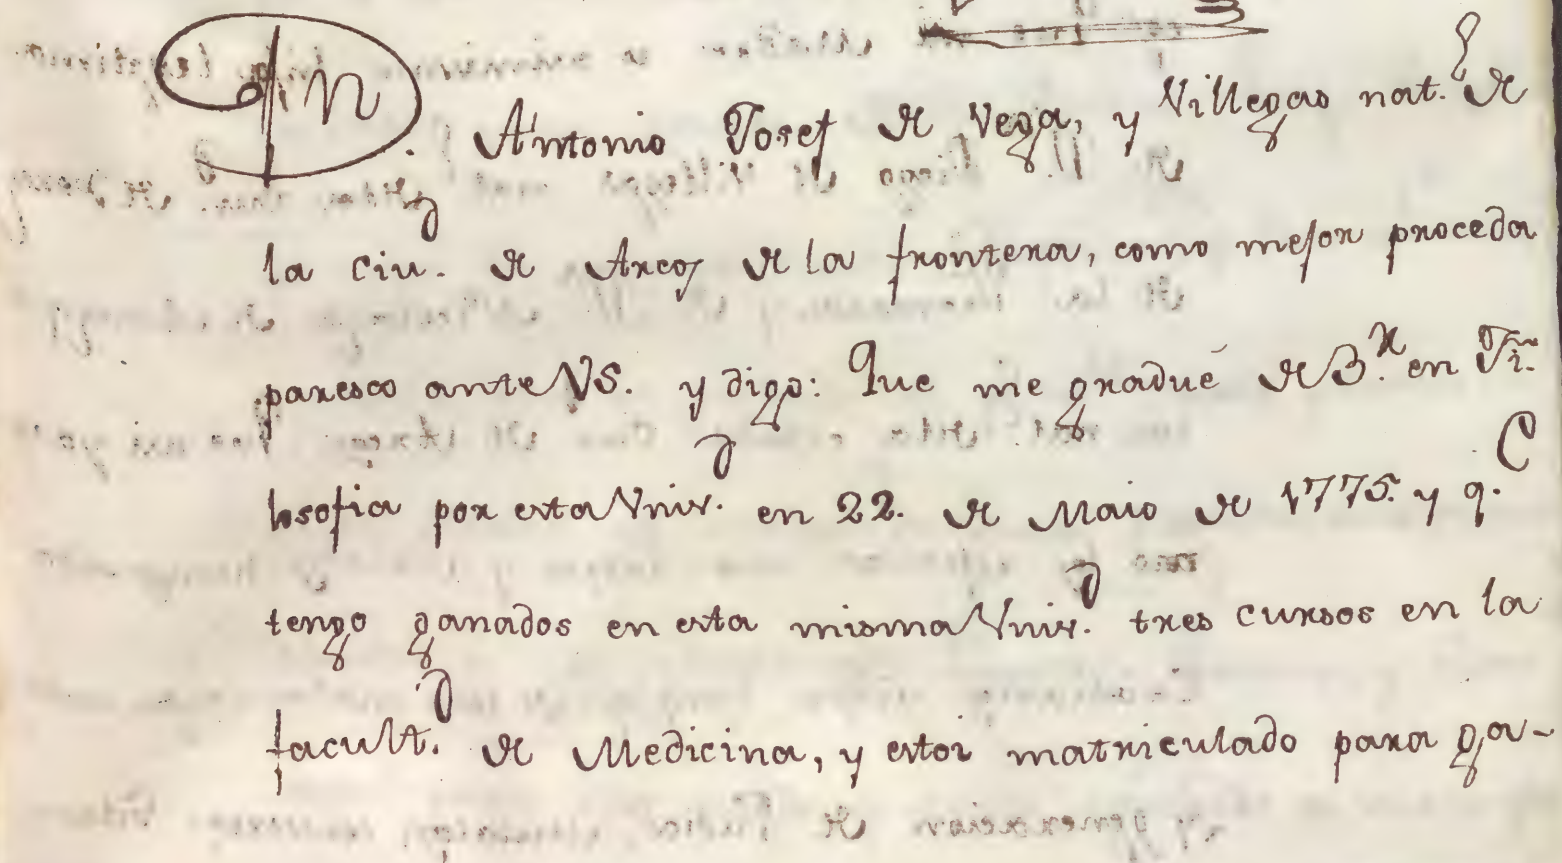 Dn. Antonio Josef de Vega, y Villegas nat.l de
la Ciu.d de Arcos de la frontera, como mejor proceda
paresco ante VS. y digo: Que me gradué de B.r en Fi-
losofia por esta Univ.d en 22. de Maio de 1775. y q.e
tengo ganados en esta misma Univ.d tres cursos en la
facult.d de Medicina, y estoi matriculado para ga-